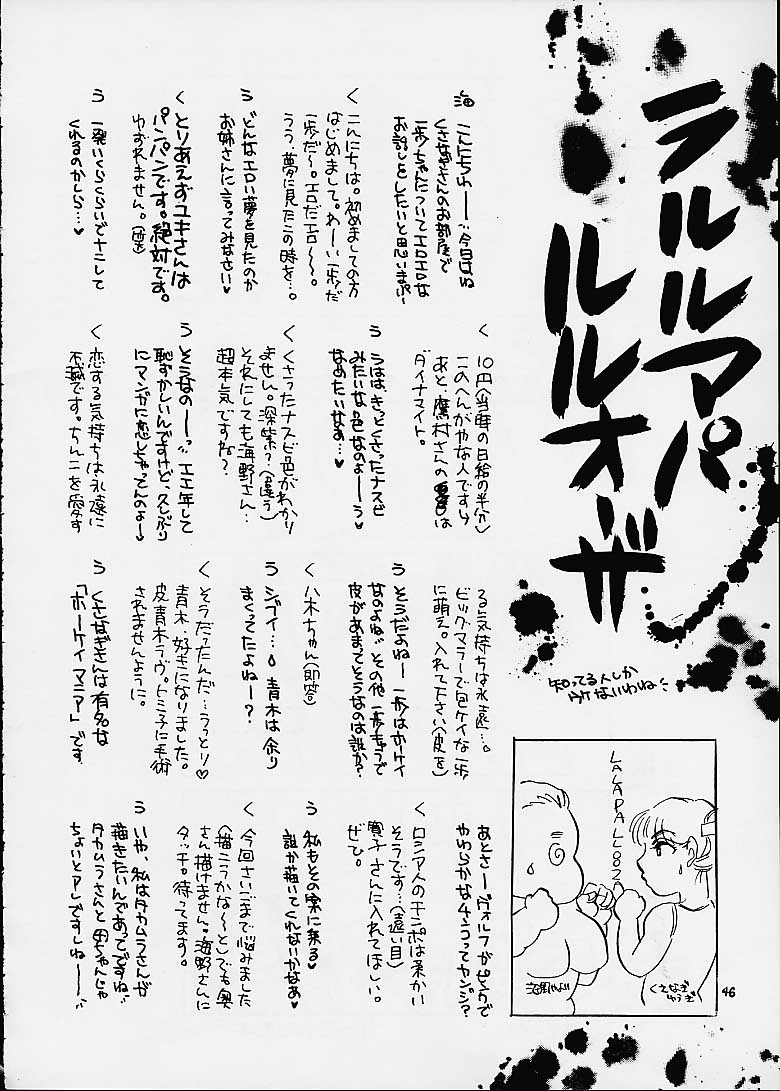 ラルルアパ
ルルオーザ
知ってる人しか
ウケないわね
海 こんにちわー 今日はね
くさなぎさんのお部屋で
一歩ちゃんについてエロエロな
お話しをしたいと思いまぷー
く こんにちは。初めましての方
はじめまして。わーい一歩だ
一歩だ〜。エロだエロ〜〜。
うう、夢に見たこの時を…。
う どんなエロい夢を見たのか
お姉さんに言ってみなさい♥
く とりあえずユキさんは
パンパンです。絶対です。
ゆずれません。
う 一発いくらくらいでナニして
くれるのかしら…♥
く 10円(当時の日給の半分)
このへんがやな人ですら
あと、鷹村さんの
は
ダイナマイト。
う うはは、きっとくさったナスビ
みたいな色なのよーう
なめたいなあ…♥
く くさったナスビ色がわかり
ません。深紫?(違う)
それにしても海野さん…
超本気ですね?
う そうなのーッ エエ年して
恥ずかしいんですけど、久しぶり
にマンガに恋しちゃってんのよー
く 恋する気持ちは永遠に
不滅です。ちんこを愛す
る気持ちは永遠…。
ビッグマラーで包ケイな一歩
に萌え。入れて下さい(皮を)
う そうだよねー 一歩はホーケイ
なのよね その他一歩キャラで
皮があまってそうなのは誰か?
く 八木ちゃん(即答)
う シブイ…。青木は余り
まくってたよねー?
く そうだったんだ…うっとり♡
青木、好きになりました。
皮青木ラヴ。トミ子に手術
されませんように。
う くさなぎさんは有名な
「ホーケイマニア」です
あとさーヴォルフがピンクで
やわらかな4んうってカンジ?
く ロシア人のチンポは柔かい
そうです…(遠い目)
寛子さんに入れてほしい。
ぜひ。
う 私もその案に乗る♥
誰か描いてくれないかなあ♥
く 今回さいごまで悩みました
(描こうかな〜)とでも奥
さん描けません。海野さんに
タッチ。待ってます。
う いや、私はタカムラさんが
描きたいんであってですね
タカムラさんと母ちゃんじゃ
ちょいとアレですしねー
LALAPALOOZA
海野やよい
くさなぎゆうぎ
46